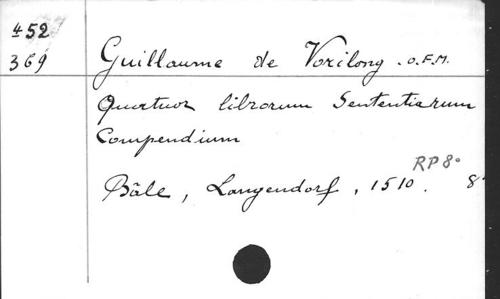 452
369
Guillaume de Vorilong . O.F.M.
Quartuor librorum Sententiarum
Compendium
RP 8°
Bâle, Langendorf, 1510. 8°